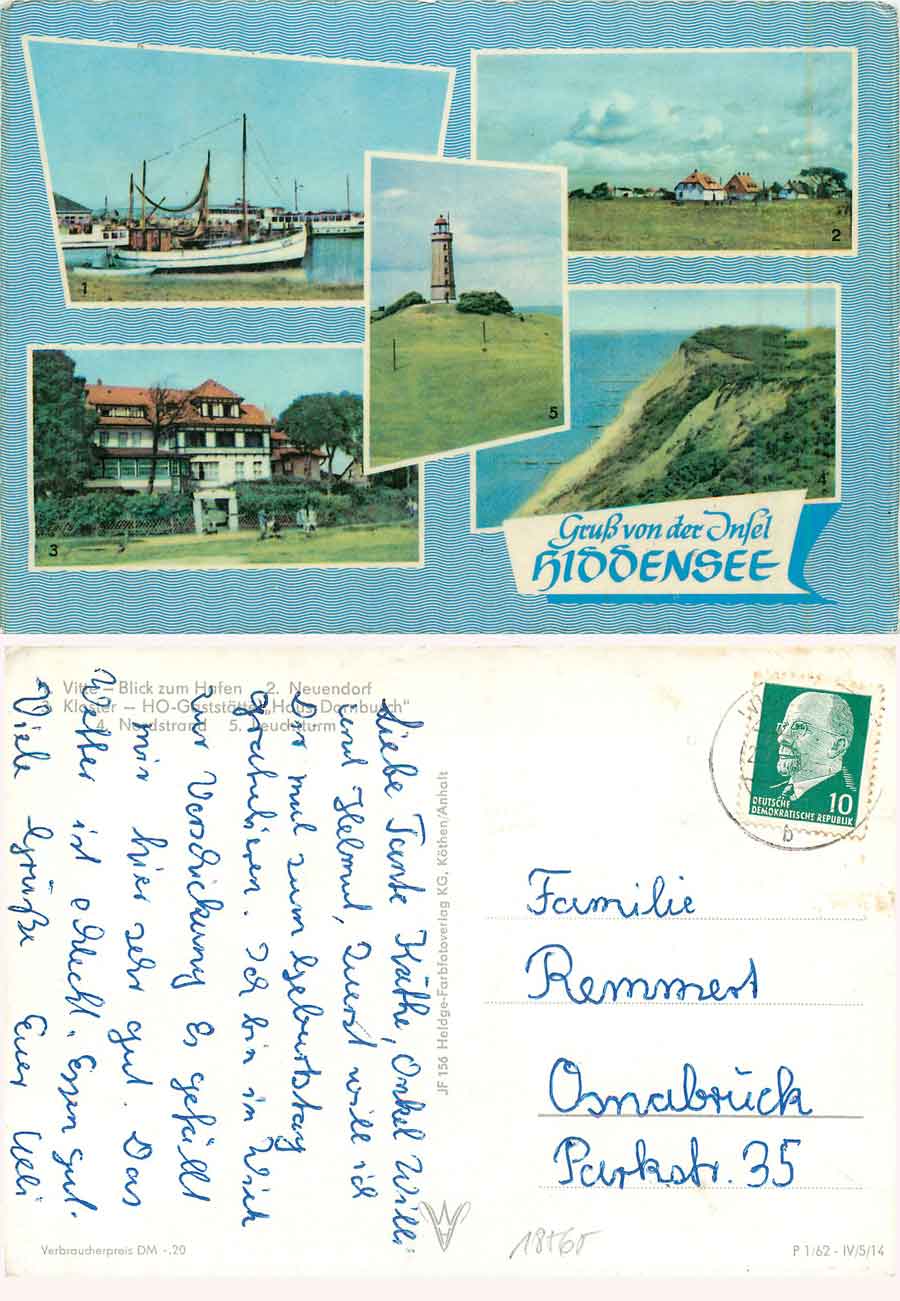 1
2
3
4
5
Gruß von der Insel
HIDDENSEE
1. Vitte – Blick zum Hafen 2. Neuendorf
3. Kloster – HO-Gaststätte „Haus Dornbusch"
4. Nordstrand 5. Leuchtturm
Liebe Tante Käthe, Onkel Willi
und Helmut, Zuerst will ich
Gratulieren. Ich bin in Wiek
zur Verschickung Es gefällt
mir hier sehr gut. Das
Wetter ist schlecht. Essen gut.
Viele Grüße Euer Ulli
JF 156 Heldge-Farbfotoverlag KG, Köthen/Anhalt
DEUTSCHE
DEMOKRATISCHE REPUBLIK
10
b
Familie
Remmert
Osnabrück
Parkstr. 35
Verbraucherpreis DM -.20
18+60
P 1/62 - IV/5/14